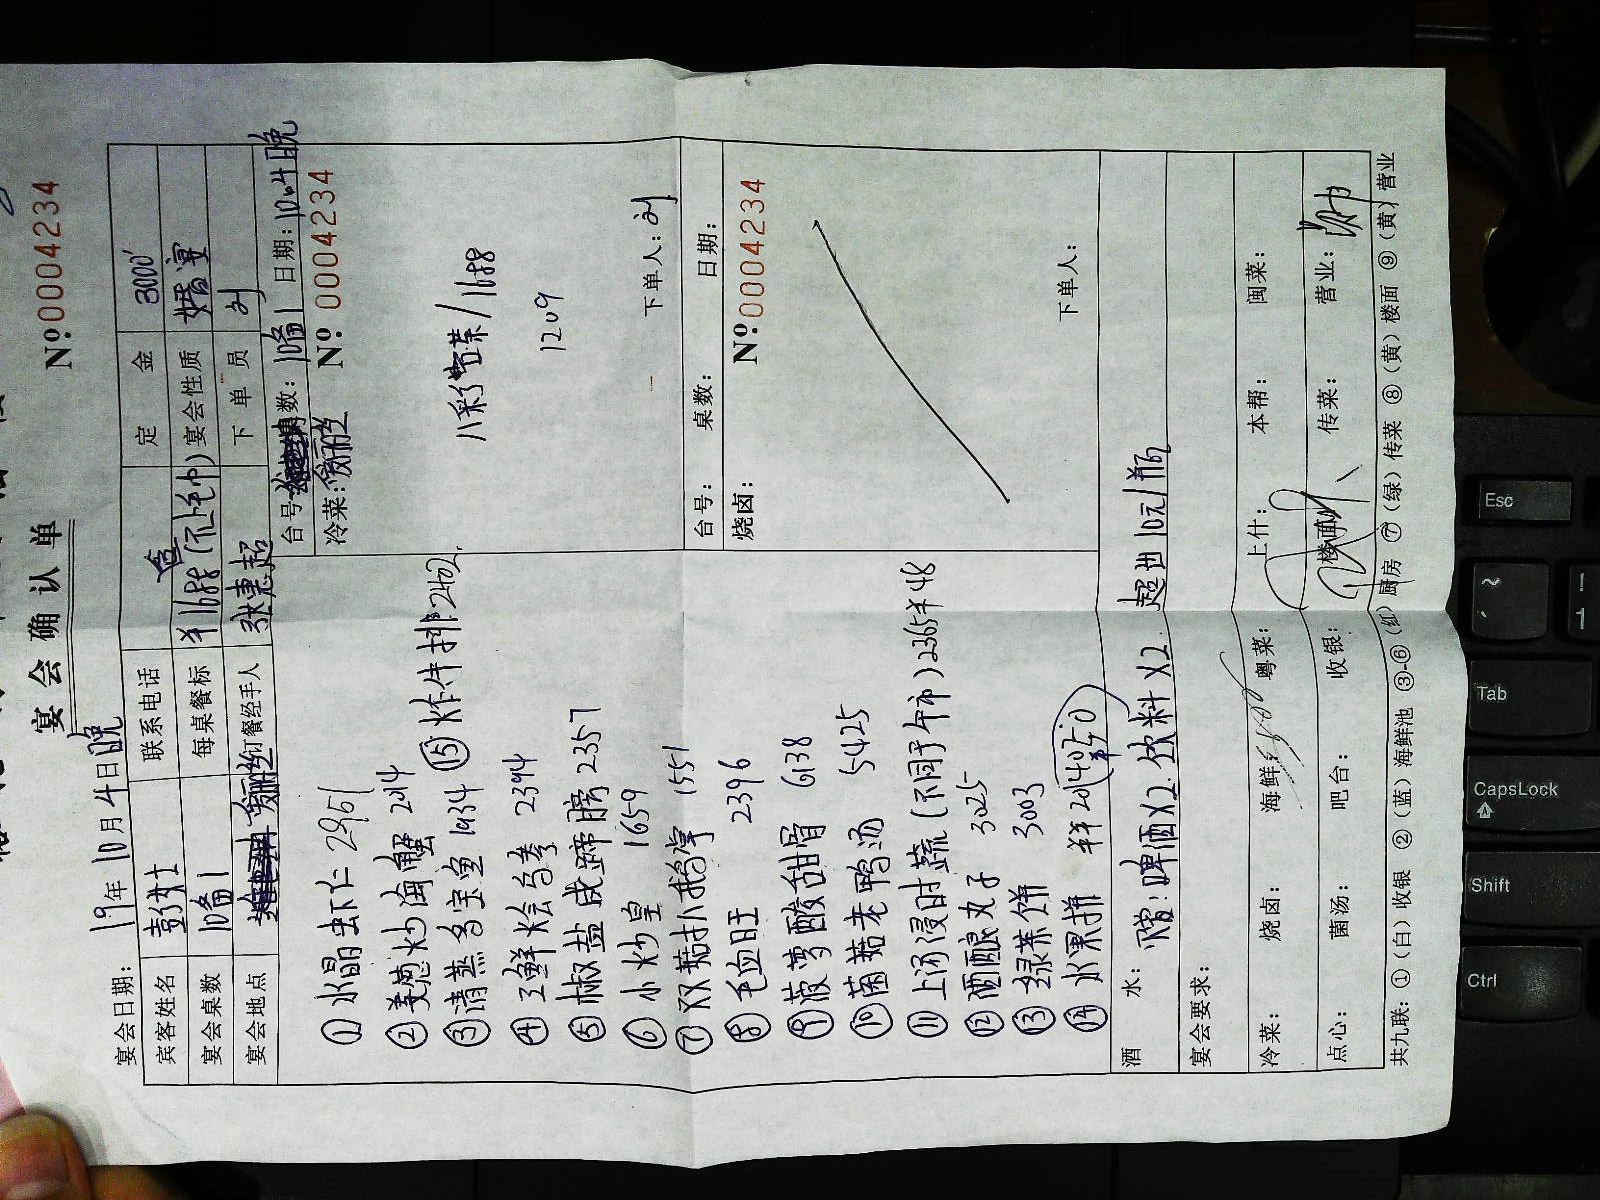 宴会确认单
№ 0004234
宴会日期： 19年10月4日晚
宾客姓名 彭女士 联系电话 定金 3000
宴会桌数 10备1 每桌餐标 ¥1688 (不上毛巾) 宴会性质 婚宴
宴会地点 订餐经手人 张惠超 下单员 刘
台号 数：10备1 日期：10.4晚
冷菜： № 0004234
八彩 / 1688
1209
下单人：刘
① 水晶虾仁 2961
② 姜葱炒海蟹 2014
③ 清蒸多宝鱼 1934 ⑮ 炸牛排 2402
④ 三鲜烩乌参 2394
⑤ 椒盐咸蹄膀 2357
⑥ 小炒皇 1659
⑦ 双菇扒鹅掌 1551
⑧ 毛血旺 2396
⑨ 菠萝酸甜骨 6138
⑩ 菌菇老鸭汤 5425
⑪ 上汤浸时蔬 (不同于午市) 2365 ¥48
⑫ 酒酿丸子 3025
⑬ 绿茶饼 3003
⑭ 水果拼
台号： 桌数： 日期：
烧卤： № 0004234
下单人：
酒水： 赠：啤酒X2 饮料X2 超出10元/瓶
宴会要求：
冷菜： 烧卤： 海鲜： 粤菜： 上什： 本帮： 闽菜：
点心： 菌汤： 吧台： 收银： 楼面： 传菜： 营业：
共九联：①（白）收银 ②（蓝）海鲜池 ③-⑥（红）厨房 ⑦（绿）传菜 ⑧（黄）楼面 ⑨（黄）营业
Esc
Tab
CapsLock
Shift
Ctrl